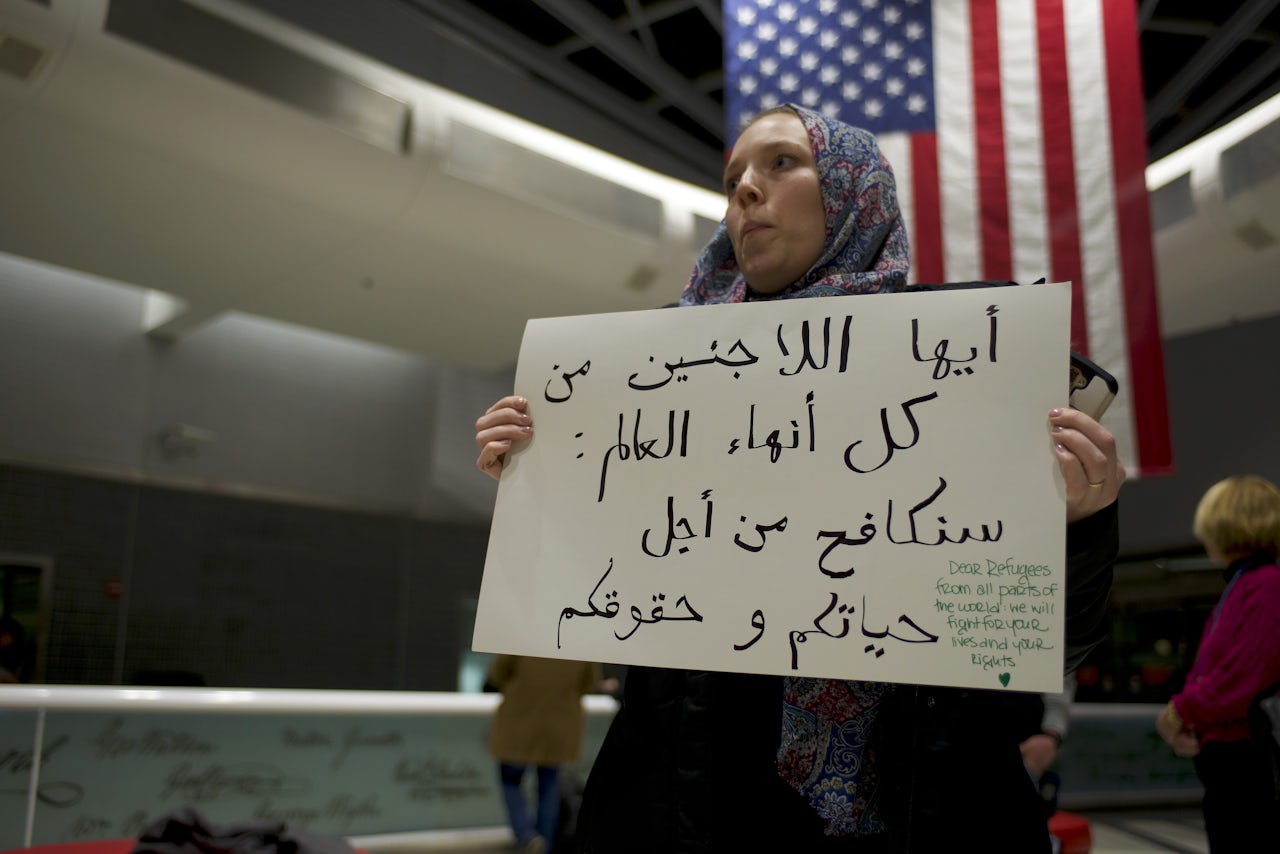 أيها اللاجئين من
كل أنهاء العالم :
سنكافح من أجل
حياتكم و حقوقكم
Dear Refugees
from all parts of
the world: we will
fight for your
lives and your
Rights